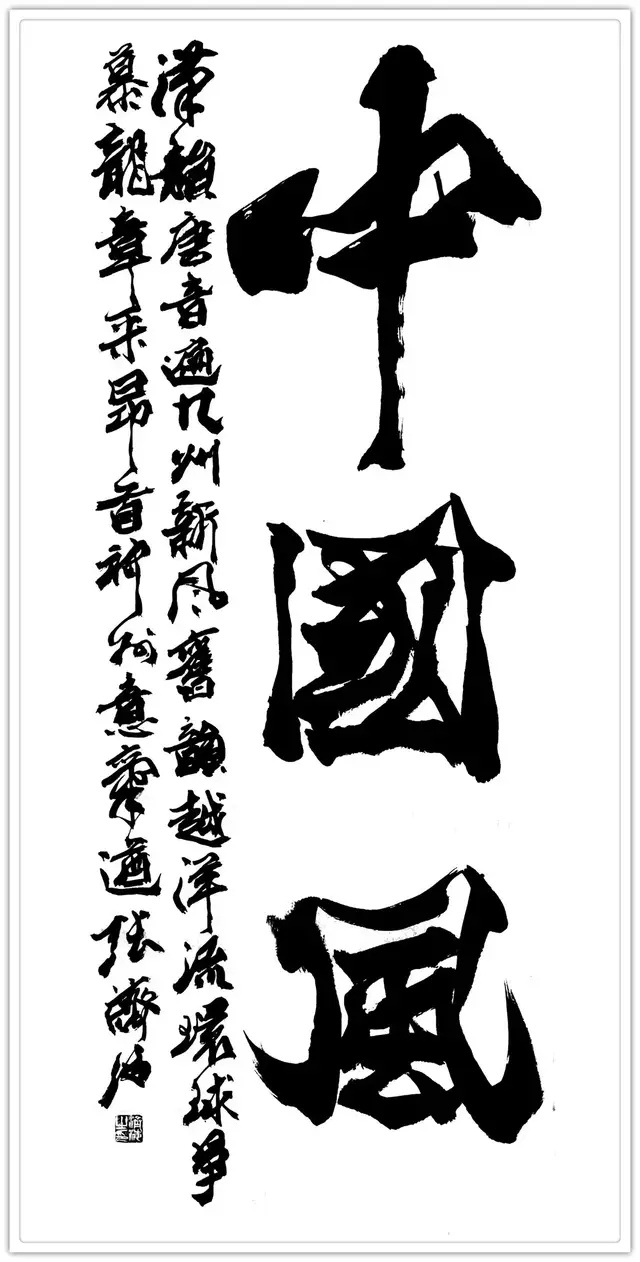 中國風
漢韻唐音遍九州新风舊韻越洋流環球爭
慕龍章采昂首神州意氣遒張濟海